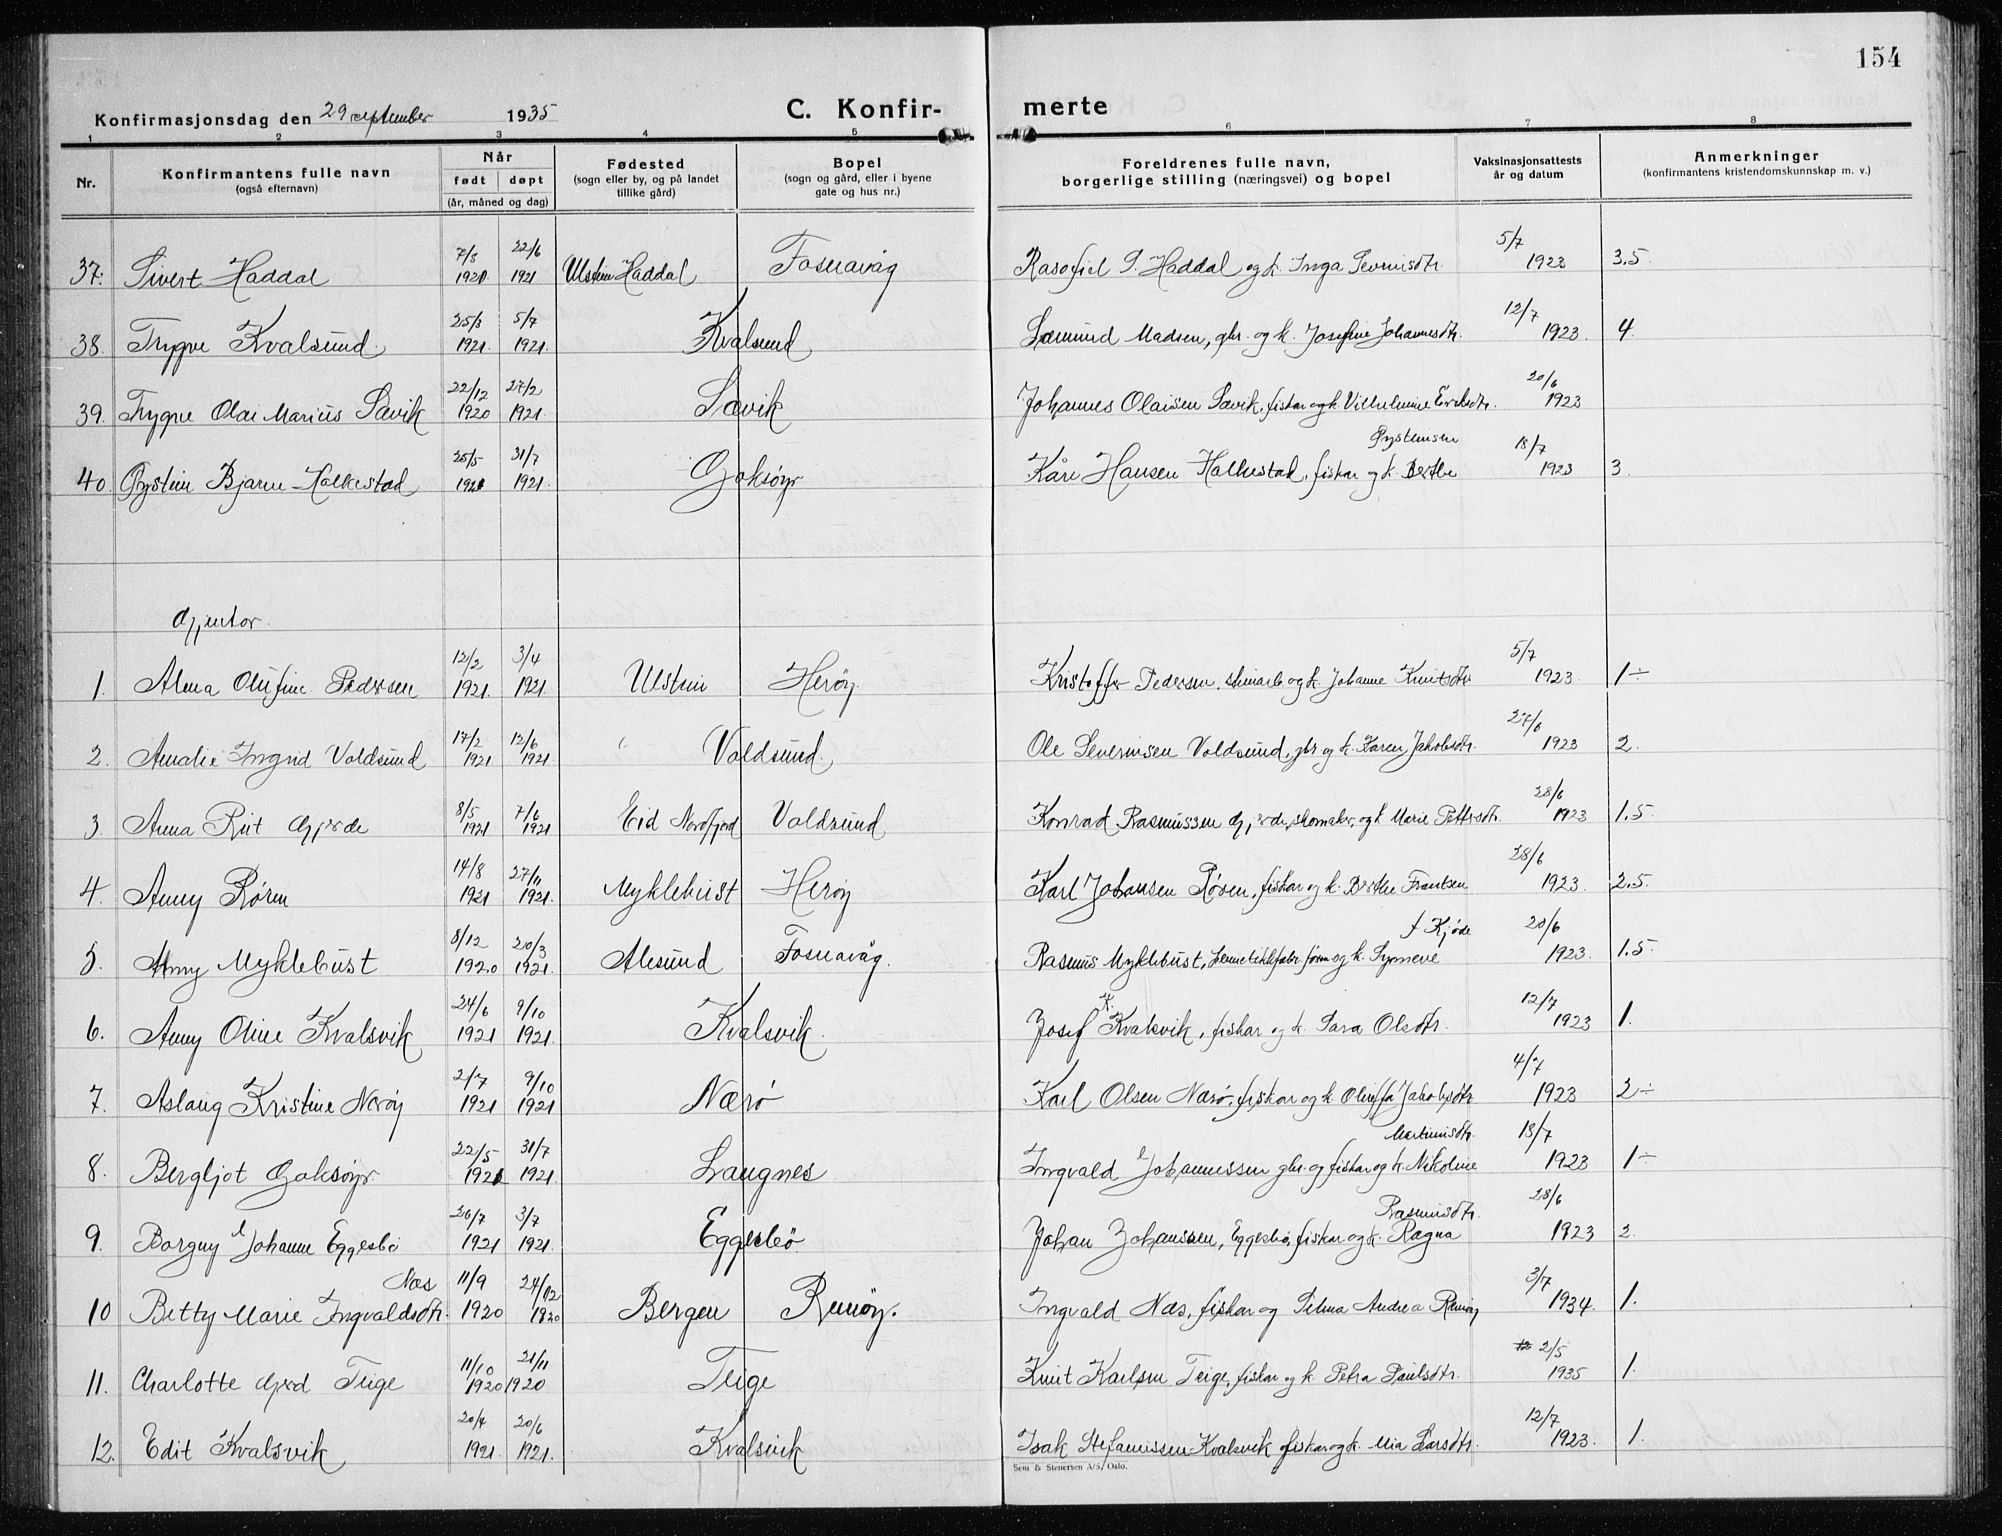 154
Konfirmasjonsdag den 29 september 1935
C. Konfir-merte
1 2 3 4 5 6 7 8
Nr.
Konfirmantens fulle navn
(også efternavn)
Når
født døpt
(år, måned og dag)
Fødested
(sogn eller by, og på landet
tillike gård)
Bopel
(sogn og gård, eller i byene
gate og hus nr.)
Foreldrenes fulle navn,
borgerlige stilling (næringsvei) og bopel
Vaksinasjonsattests
år og datum
Anmerkninger
(konfirmantens kristendomskunnskap m. v.)
37. Sivert Haddal 7/3 1921 22/6 1921 Ulstein Haddal Fosnavåg P. Haddal og k. Inga 5/7 1923 3.5.
38. Trygve Kvalsund 25/3 1921. 5/7 1921. Kvalsund Sæmund Madsen, gbr. og k. Josefine Johannesdtr. 12/7 1923. 4.
39. Trygve Olai Marius Sævik 22/12 1920 27/2 1921. Sævik Johannes Olaisen Sævik, fiskar og k. Vilhelmine Eriksdtr. 20/6 1923
40. Øystein Bjarne Halkestad 25/5 1921 31/7 1921. Goksøyr Kåre Hansen Halkestad, fiskar og k. Berthe Øysteinsen 18/7 1923 3.
Gjentor.
1. Alma Olufine Pedersen 12/2 1921. 3/4 1921. Ulstein Herøy. Kristoffer Pedersen, og k. Johanne Knutsdtr 5/7 1923. 1÷
2. Amalie Ingrid Voldsund 17/2 1921 12/6 1921 Voldsund. Ole Severinsen Voldsund, gbr og k. Karen Jakobsdtr. 27/6 1923 2.
3. Anna Rut Gjerde 8/5 1921 7/6 1921 Eid Nordfjord Voldsund Konrad Rasmussen Gjerde, skomaker, og k Marie Pettersdtr. 28/6 1923 1.5.
4. Anny Røren 14/8 1921 27/11 1921. Myklebust Herøy Karl Johansen Røren, fiskar og k. Berthe Frantsen 28/6 1923. 2.5.
5. Anny Myklebust 8/12 1920 20/3 1921. Ålesund Fosnavåg. Rasmus Myklebust, og k. Synneve f Kjøde 20/6 1923. 1.5.
6. Anny Oline Kvalsvik 24/6 1921 9/10 1921. Kvalsvik. Josef K. Kvalsvik, fiskar og k. Sara Olsdtr. 12/7 1923 1.
7. Aslaug Kristine Nerøy 2/7 1921 9/10 1921 Nærø Karl Olsen Nærø, fiskar og k. Oluffa Jakobsdtr 4/7 1923 2÷
8. Bergljot Goksøyr 22/5 1921 31/7 1921. Laugnes Ingvald Johannessen gbr. og fiskar og k. Nikoline Martinusdtr. 18/7 1923 1÷
9. Borgny Johanne Eggesbø 26/7 1921 3/7 1921. Eggesbø Johan Johanssen, Eggesbø, fiskar og k. Ragna Rasmusdtr. 28/6 1923 2.
10 Betty Marie Ingvaldsdtr. Næs 11/9 1920 24/12 1920 Bergen Remøy. Ingvald Næs, fiskar og Selma Andrea Remøy 3/7 1934. 1.
11. Charlotte Gjerd Teige 11/10 1920 21/11 1920 Teige Knut Karlsen Teige, fiskar og k. Petra Paulsdtr. 2/5 1935 1.
12. Edit Kvalsvik 20/4 1921. 20/6 1921. Kvalsvik Isak Stefanussen Kvalsvik fiskar og k. Mia Larsdtr. 12/7 1923. 1.
Sem & Stenersen A/S, Oslo.